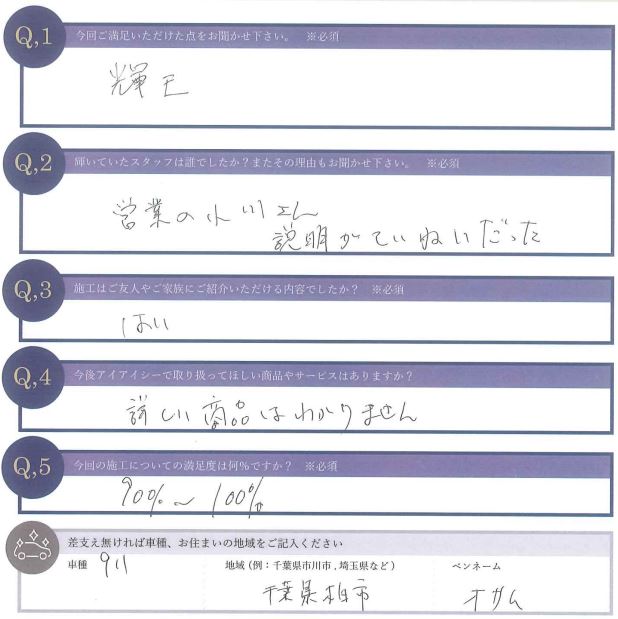 Q,1 今回ご満足いただけた点をお聞かせ下さい。 ※必須
輝き
Q,2 輝いていたスタッフは誰でしたか？またその理由もお聞かせ下さい。 ※必須
営業の小川さん
説明がていねいだった
Q,3 施工はご友人やご家族にご紹介いただける内容でしたか？ ※必須
はい
Q,4 今後アイアイシーで取り扱ってほしい商品やサービスはありますか？
詳しい商品はわかりません
Q,5 今回の施工についての満足度は何%ですか？ ※必須
90%~100%
差支え無ければ車種、お住まいの地域をご記入ください
車種 911 地域（例：千葉県市川市,埼玉県など） ペンネーム
千葉県柏市 オサム